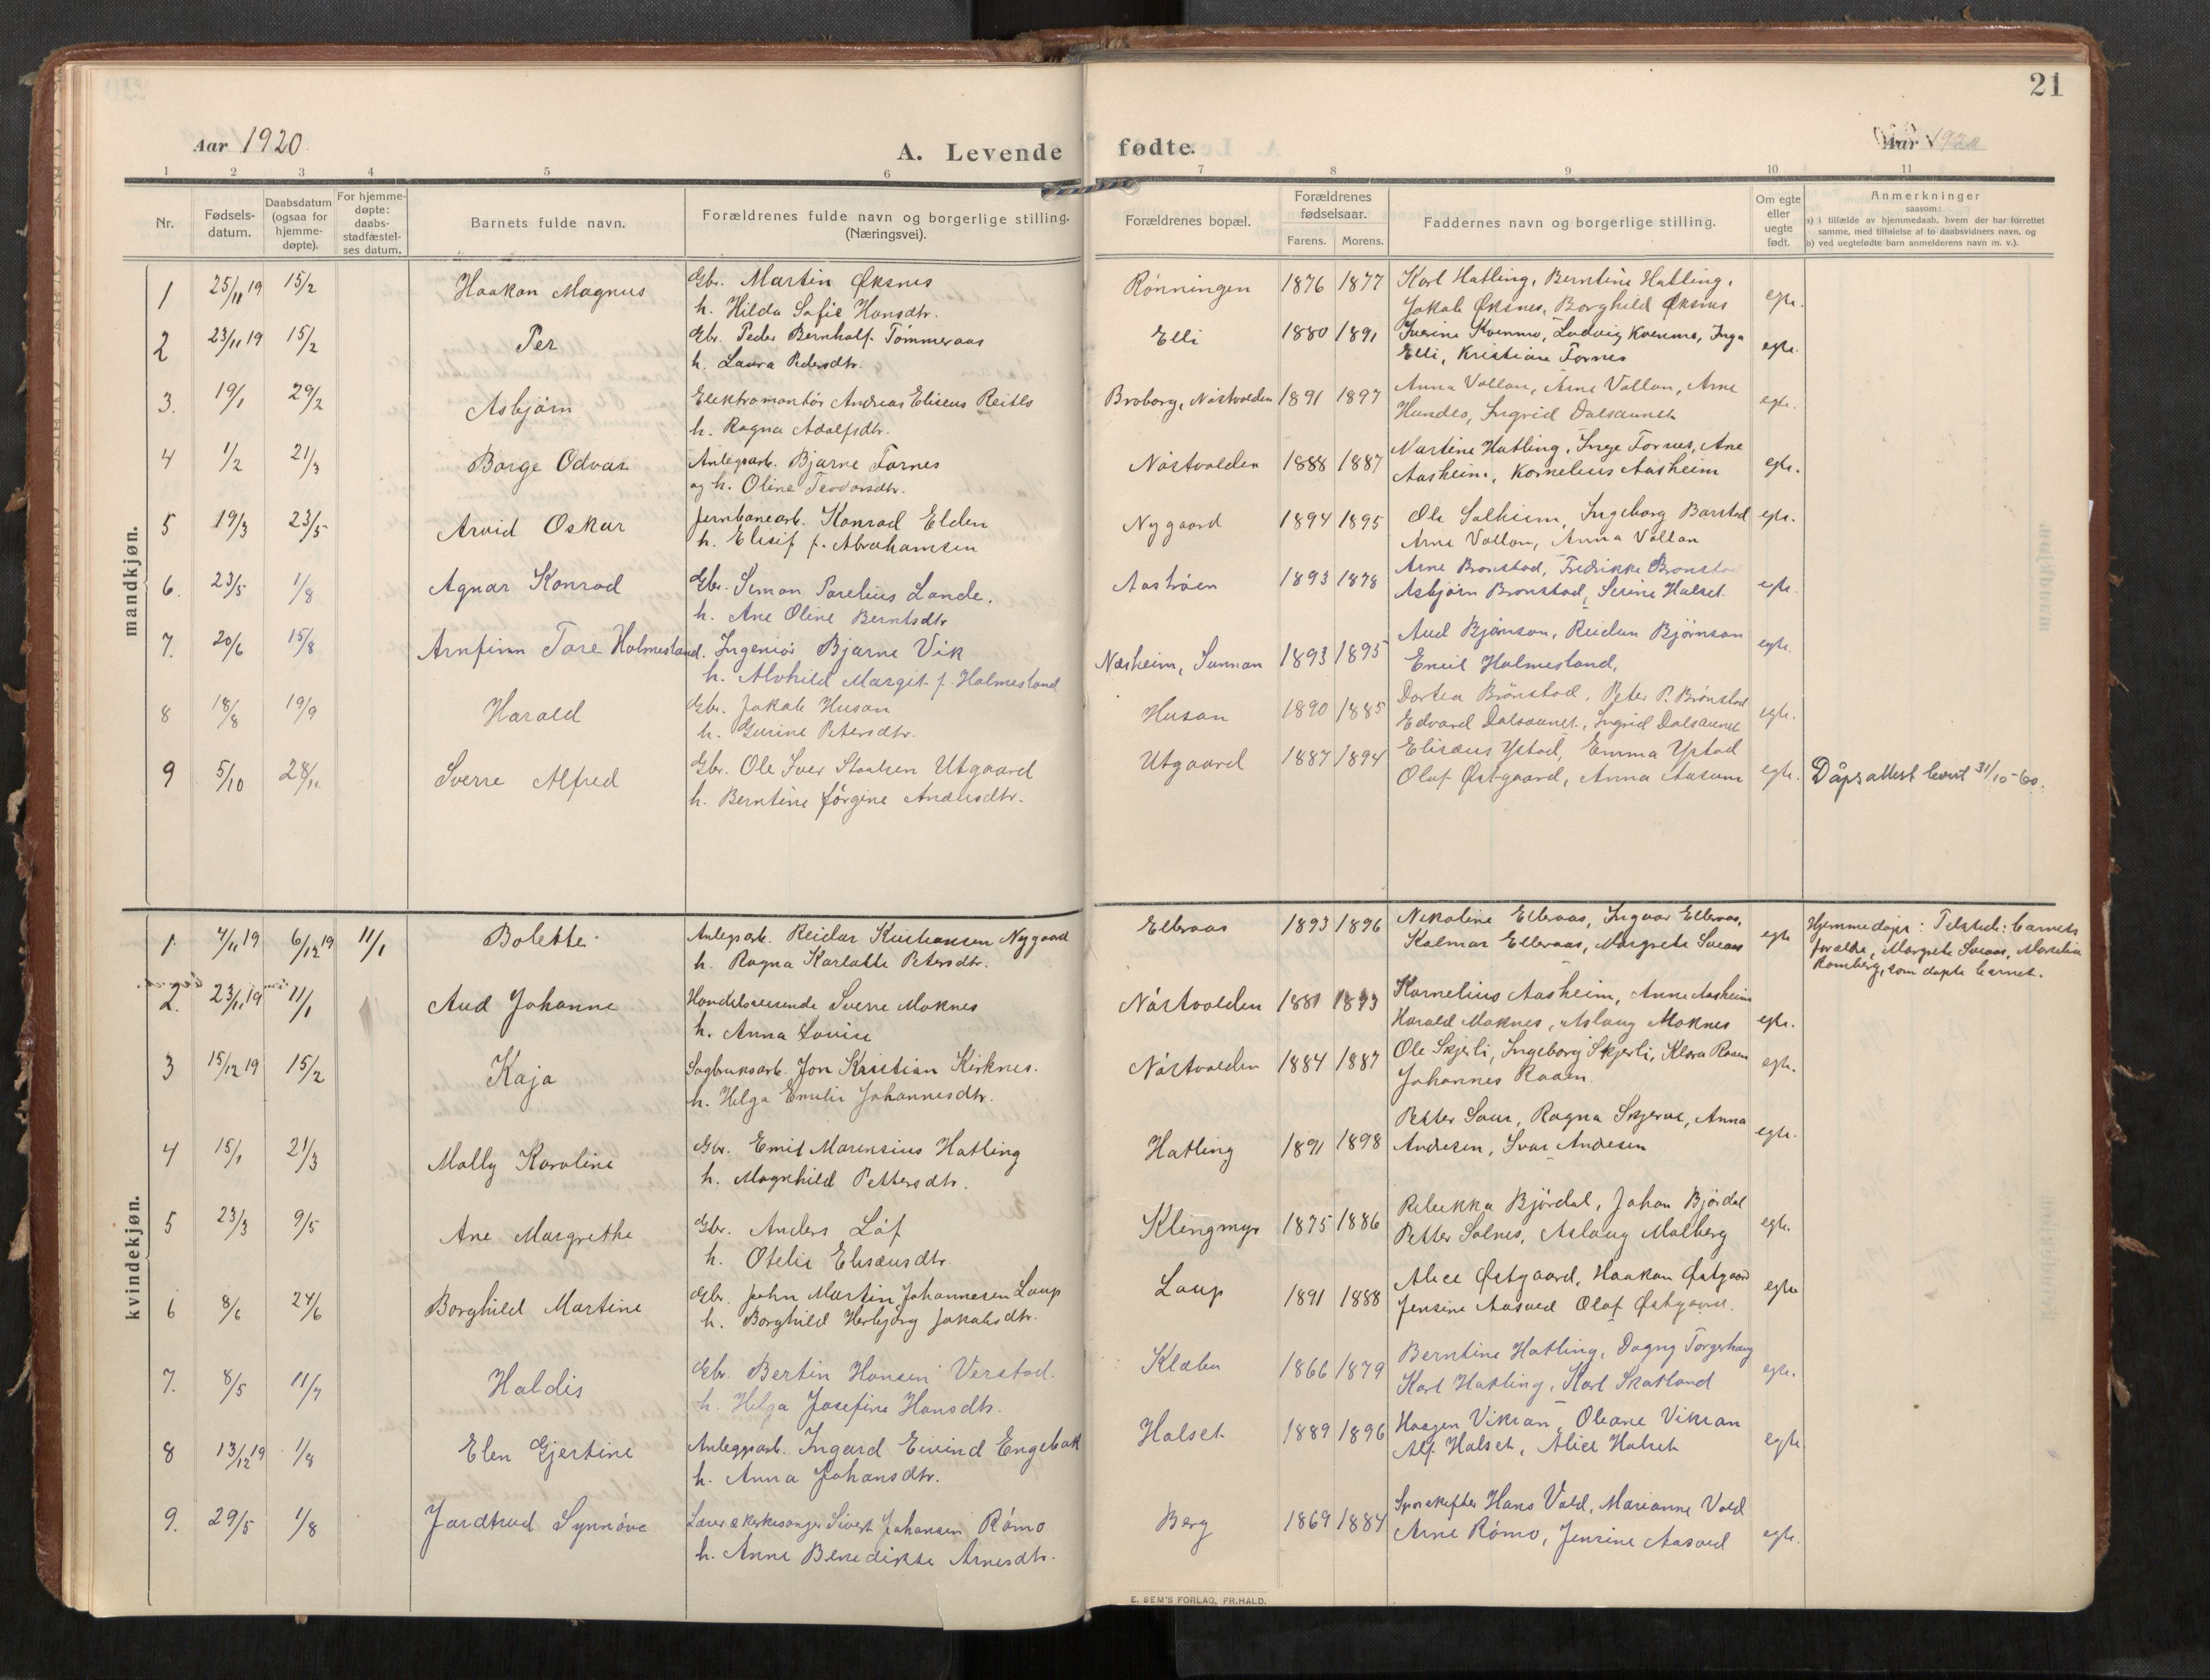 21
Aar 1920.
A. Levende fødte.
Aar 1920
1 2 3 4 5 6 7 8 9 10 11
Nr.
Fødsels-
datum.
Daabsdatum
(ogsaa for
hjemme-
døpte).
For hjemme-
døpte:
daabs-
stadfæstel-
ses datum.
Barnets fulde navn.
Forældrenes fulde navn og borgerlige stilling.
(Næringsvei).
Forældrenes bopæl.
Forældrenes
fødselsaar.
Farens. Morens.
Faddernes navn og borgerlige stilling.
Om egte
eller
uegte
født.
Anmerkninger
saasom:
a) i tilfælde av hjemmedaab, hvem der har forrettet
samme, med tilføielse af to daabsvidners navn, og
b) ved uegtefødte barn anmelderens navn m. v.).
mandkjøn.
1 25/11 19 15/2 Haakon Magnus Gbr. Martin Øksnes Rønningen 1876 1877 Karl Hatling, Berntine Hatling,
h. Hilda Sofie Hansdtr. Jakob Øksnes, Borghild Øksnes egte.
2 23/11 19 15/2 Per Gbr. Peder Bernhalf Tømmeraas Elli 1880 1891 Kvenmo, Ludvig Kvenmo, Inga
h. Laura Pedersdtr. Elli, Kristian Fornes egte.
3. 19/1 29/2 Asbjørn Elektromontør Andreas Eliseus Reitls Broborg, Nåstvolden 1891 1897 Anna Vollan, Arne Vollan, Arne
h. Ragna Adolfsdtr. Hundes, Ingrid Dalsaunet egte.
4 1/2 21/3 Borge Odvar Anlegsarb. Bjarne Fornes Nåstvolden 1888 1887 Martine Hatling, Inge Fornes, Ane
og h. Oline Teodorsdtr. Aasheim, Kornelius Aasheim egte.
5 19/3 23/5 Arvid Oskar Jernbanearb. Konrad Elden Nygaard 1894 1895 Ole Solheim, Ingeborg Barstad egte.
h. Elisif f. Abrahamsen Arne Vollan, Anna Vollan
6. 23/5 1/8 Agnar Konrad Gbr. Simon Parelius Lande. Aastrøen 1893 1878 Arne Bronstad, Fredrikke Bronstad
h. Ane Oline Berntsdtr Asbjørn Bronstad, Serine Halset egte.
7. 20/6 15/8 Arnfinn Tore Holmesland. Ingeniør Bjarne Vik Næsheim, Sunnan 1893 1895 Aud Bjørnson, Reidun Bjørnson
h. Alvhild Margit f. Holmesland Emil Holmesland, egte.
8 18/8 19/9 Harald Gbr. Jakob Husan Husan 1890 1885 Dortea Brønstad, Peter P. Brønstad
h. Gurine Petersdtr. Edvard Dalsaunet, Ingrid Dalsaunet egte.
9 5/10 28/11 Sverre Alfred Gbr. Ole Iver Staalsen Utgaard Utgaard 1887 1894 Elisæus Ystad, Emma Ystad
h. Berntine Jørgine Andersdtr. Olaf Østgaard, Anna Aasum egte. Dåpsattest levert 31/10-60.
kvindekjøn.
1 4/11 19 6/12 19 11/1 Bolette Anlegsarb. Reidar Kristiansen Nygaard Elleraas 1893 1896 Nikoline Elleraas, Ingvar Elleraas,
h. Ragna Karlotte Petersdtr. Kalmar Elleraas, Margrete Sveaas egte
Hjemmedøpt: Tilsted: barnets
forældre, Margrete Sveaas, Marselia
Romberg, som døpte barnet.
2. 23/11 19 11/1 Aud Johanne Handelsreisende Sverre Moknes Nåstvolden 1881 1893 Kornelius Aasheim, Anne Aasheim
h. Anna Lovise Harald Moknes, Aslaug Moknes egte.
3 15/12 19 15/2 Kaja Sagbruksarb. Jon Kristian Kirknes. Nåstvolden 1884 1887 Ole Skjerli, Ingeborg Skjerli, Klara Raaen
h. Helga Emilie Johannesdtr. Johannes Raaen. egte.
4 15/1 21/3 Molly Karoline Gbr. Emil Marensius Hatling Hatling 1891 1898 Petter Saur, Ragna Skjerve, Anna
h. Magnhild Pettersdtr. Andresen, Ivar Andresen egte.
5 23/3 9/5 Ane Margrethe Gbr. Anders Løf Klingmyr 1875 1886 Rebekka Bjørdal, Johan Bjørdal
h. Otelie Elisæusdtr. Petter Solnes, Aslaug Malberg egte.
6 8/6 24/6 Borghild Martine Gbr. John Martin Johannesen Laup Laup 1891 1888 Alice Østgaard, Haakon Østgaard
h. Borghild Herbjørg Jakobsdtr. Jensine Aasved Olaf Østgaard. egte
7. 8/5 11/7 Haldis Gbr. Bertin Hansen Verstad. Klæbu 1866 1879 Berntine Hatling, Dagny Torgerhaug
h. Helga Josefine Hansdtr. Karl Hatling, Karl Skatland egte.
8 13/12 19 1/8 Elen Gjertine Anleggsarb. Ingard Eivind Engebak Halset 1889 1896 Haagen Vikran, Oleane Vikran
h. Anna Johansdtr. Alf Halset, Alice Halset egte.
9. 29/5 1/8 Jardtrud Synnøve Lærer & kirkesanger Sivert Johansen Rømo Berg 1869 1884 Hans Vold, Marianne Vold
h. Anne Benedikte Arnesdtr. Arne Rømo, Jensine Aasved egte.
E. SEM'S FORLAG, FR.HALD.